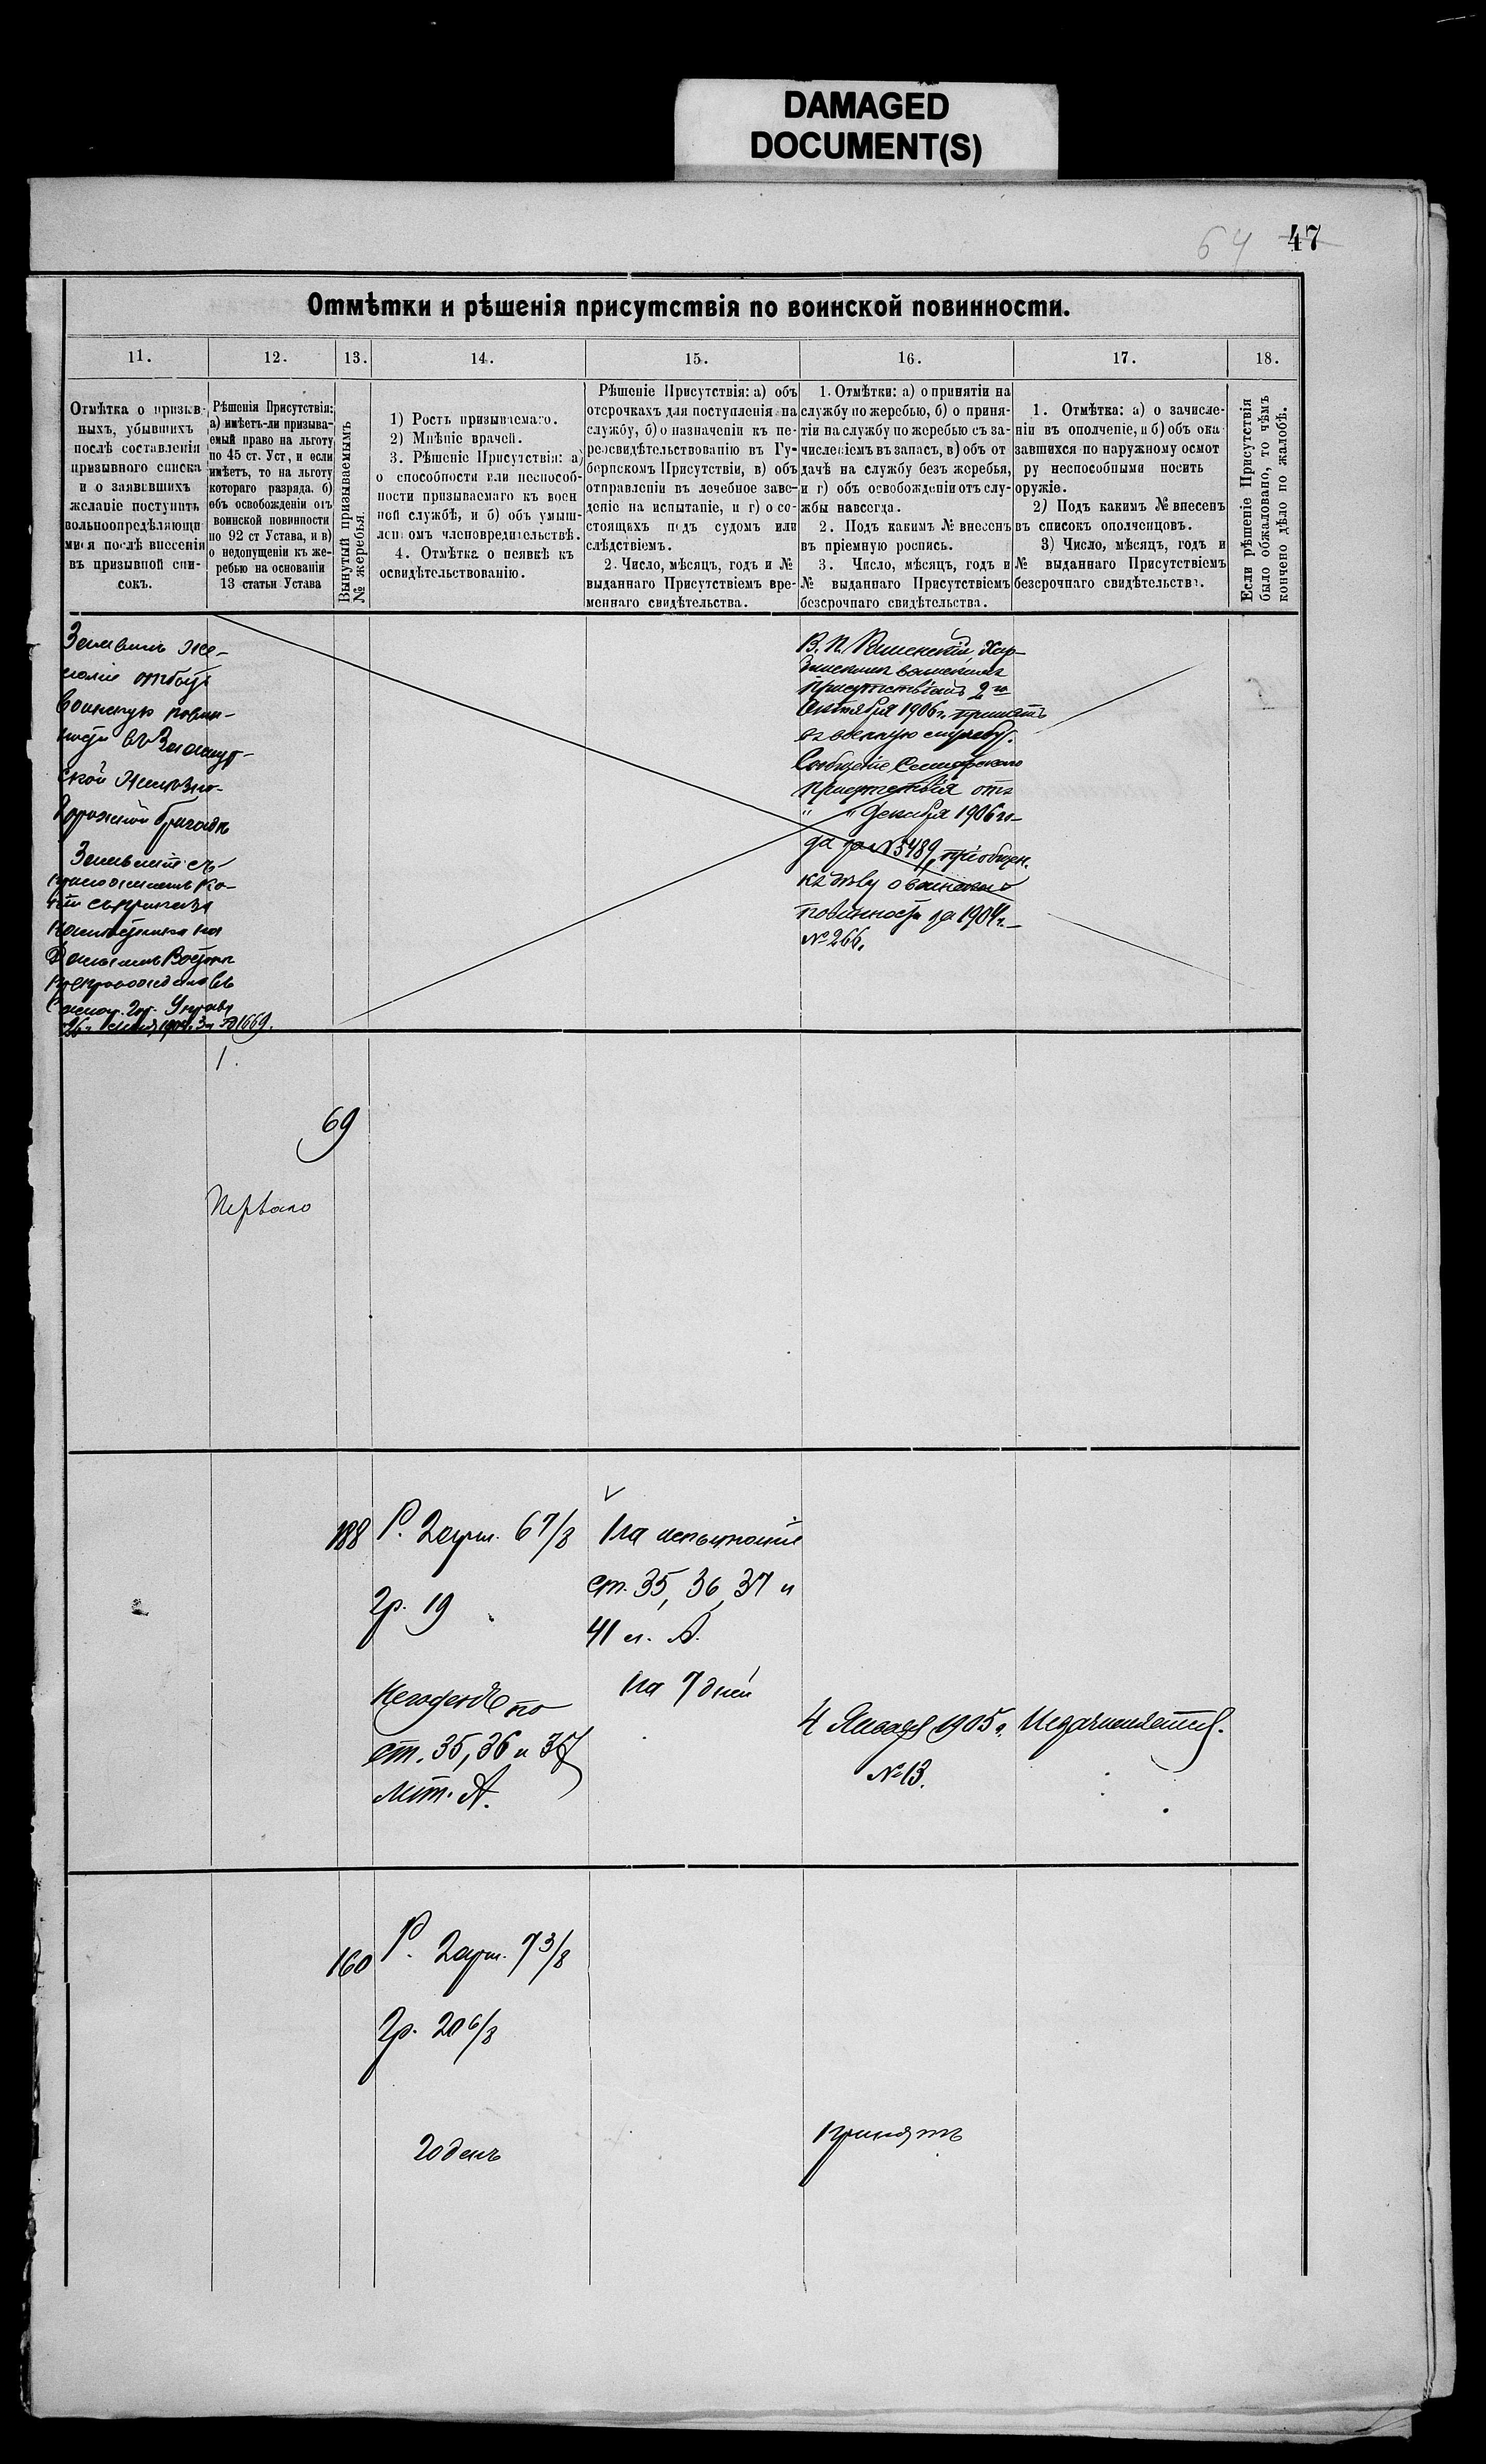 DAMAGED
DOCUMENT(S)
64 47
Отмѣтки и рѣшенія присутствія по воинской повинности.
11. 12. 13. 14. 15. 16. 17. 18.
Отмѣтка о призыв-
ныхъ, убывшихъ
послѣ составленія
призывного списка
и о заявившихъ
желаніе поступить
вольноопредѣляющи
мися послѣ внесенія
въ призывной спи-
сокъ.
Рѣшенія Присутствія:
а) имѣетъ-ли призыва-
емый право на льготу
по 45 ст. Уст, и если
имѣетъ, то на льготу
котораго разряда. б)
объ освобожденіи отъ
воинской повинности
по 92 ст Устава, и в)
о недопущеніи къ же-
ребью на основаніи
13 статьи Устава
Вынутый призываемымъ
№ жеребья.
1) Ростъ призываемаго.
2) Мнѣніе врачей.
3. Рѣшеніе Присутствія: а)
о способности или неспособ-
ности призываемаго къ воен
ной службѣ, и б) объ умыш-
ленномъ членовредительствѣ.
4. Отмѣтка о неявкѣ къ
освидѣтельствованію.
Рѣшеніе Присутствія: а) объ
отсрочкахъ для поступленія на
службу, б) о назначеніи къ пе-
реосвидѣтельствованію въ Гу-
бернскомъ Присутствіи, в) объ
отправленіи въ лечебное заве-
деніе на испытаніе, и г) о со-
стоящихъ подъ судомъ или
слѣдствіемъ.
2. Число, мѣсяцъ, годъ и №
выданнаго Присутствіемъ вре-
меннаго свидѣтельства.
1. Отмѣтки: а) о принятіи на
службу по жеребью, б) о приня-
тіи на службу по жеребью съ за-
численіемъ въ запасъ, в) объ от
дачѣ на службу безъ жеребья,
и г) объ освобожденіи отъ слу-
жбы навсегда.
2. Подъ какимъ № внесенъ
въ пріемную роспись.
3. Число, мѣсяцъ, годъ и
№ выданнаго Присутствіемъ
безсрочнаго свидѣтельства.
1. Отмѣтка: а) о зачисле-
ніи въ ополченіе, и б) объ ока
завшихся по наружному осмот
ру неспособными носить
оружіе.
2) Подъ какимъ № внесенъ
въ списокъ ополченцовъ.
3) Число, мѣсяцъ, годъ и
№ выданнаго Присутствіемъ
безсрочнаго свидѣтельств.
Если рѣшеніе Присутствія
было обжаловано, то чѣмъ
кончено дѣло по жалобѣ.
Заявилъ же-
ланіе отбыть
воинскую повин-
ность въ Заамур-
ской желѣзно-
дорожной бригадѣ
Заявленіе съ
приложеніемъ ко-
піи съ приказа
намѣстника на
Дальнемъ Востокѣ
препровождено въ
гор. Управу
26 1904 за № 1669.
В. П.
присутствіемъ 2го
Октября 1906г. принятъ
въ военную службу.
Сообщеніе
присутствія отъ
" " Декабря 1906 го-
да за №5489, пріобщен.
къ дѣлу о воинской
повинности за 1904г.
№ 266.
1.
69
Перваго
188 Р. 2 арш. 6 7/8
Гр. 19
Негоденъ по
ст. 35, 36 и 37
лит. А.
На испытаніе
ст. 35, 36, 37 и
41 л. А.
На 7 дней
4 Января 1905г.
№ 13.
Незачисляется.
160 Р. 2 арш. 7 3/8
Гр. 20 6/8
Годенъ
принятъ